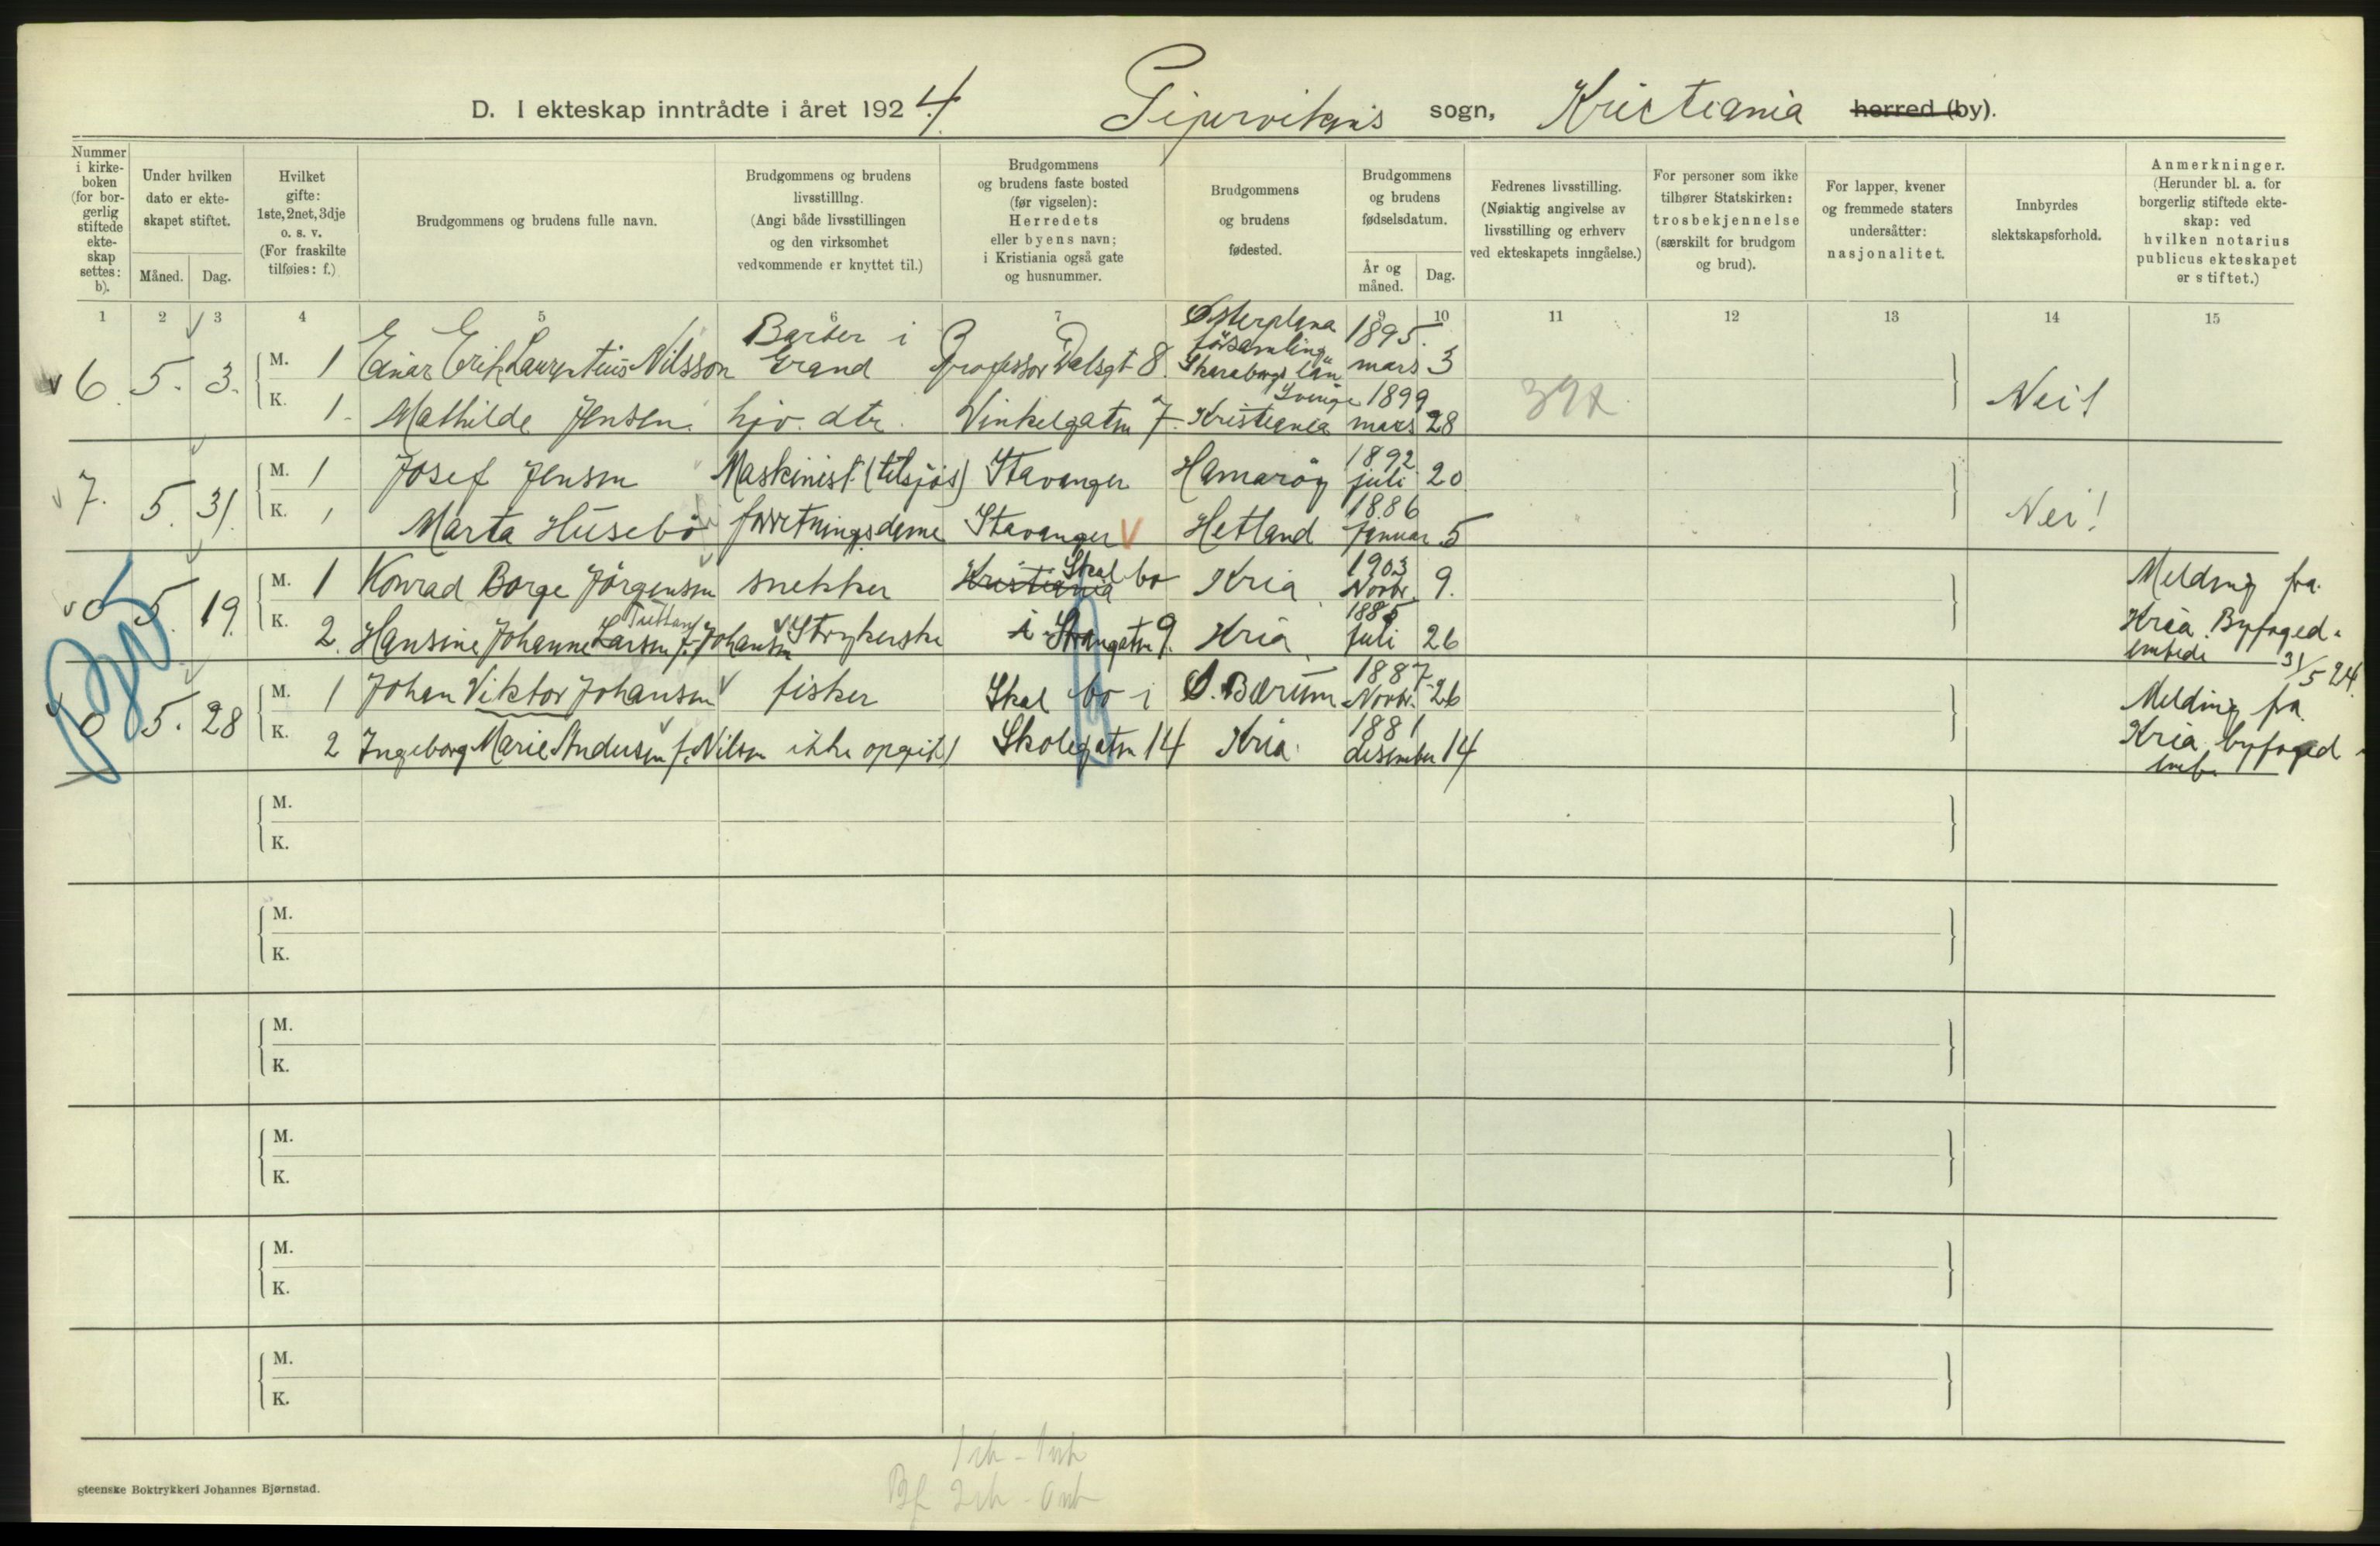 D. I ekteskap inntrådte i året 1924. Pipervikens sogn, Kristiania herred (by).
Nummer i kirke- boken (for bor- gerlig stiftede ekte- skap settes: b).
Under hvilken dato er ekte- skapet stiftet.
Måned. Dag.
Hvilket gifte: 1ste, 2net, 3dje o. s. v. (For fraskilte tilføies: f.)
Brudgommens og brudens fulle navn.
Brudgommens og brudens livsstilllng. (Angi både livsstillingen og den virksomhet vedkommende er knyttet til.)
Brudgommens og brudens faste bosted (før vigselen): Herredets eller byens navn; i Kristiania også gate og husnummer.
Brudgommens og brudens fødested.
Brudgommens og brudens fødselsdatum.
År og måned. Dag.
Fedrenes livsstilling. (Nøiaktig angivelse av livsstilling og erhverv ved ekteskapets inngåelse.)
For personer som ikke tilhører Statskirken: trosbekjennelse (særskilt for brudgom og brud).
For lapper, kvener og fremmede staters undersåtter: nasjonalitet.
Innbyrdes slektskapsforhold.
Anmerkninger. (Herunder bl. a. for borgerlig stiftede ekte- skap: ved hvilken notarius publicus ekteskapet er stiftet.)
1 2 3 4 5 6 7 8 9 10 11 12 13 14 15
6. 5. 3. M. 1 Einar Erik Laurentius Nilsson Barber i Grand Professor Dalsgt 8. Österplana församling Skaraborgs län Sverige 1895. mars 3
K. 1. Mathilde Jensen. hjv. dtr. Vinkelgaten 7. Kristiania 1899 mars 28 Nei!
7. 5. 31. M. 1 Josef Jensen Maskinist (tilsjøs) Stavanger Hamarøy 1892 juli 20
K. 1 Marta Husebö forretningsdame Stavanger Hetland 1886 Januar 5 Nei!
5. 19. M. 1 Konrad Borge Jörgensen snekker Kristiania Skal bo Kria 1903 Novbr. 9. Melding fra
K. 2. Hansine Johanne Larsen f. Johansen Strykerske i gaten 9. Kria 1885 Juli 26 Kria Byfoged- embede 31/5 24.
5. 28 M. 1 Johan Viktor Johansen fisker Skal bo i Ö. Bærum 1887 Novbr. 26 Melding fra
K. 2 Ingeborg Marie Andersen f. Nilsen ikke opgitt Skolegaten 14 Kria. 1881 desember 14 Kria byfoged- emb.
M.
K.
M.
K.
M.
K.
M.
K.
M.
K.
M.
K.
Steenske Boktrykkeri Johannes Bjørnstad.